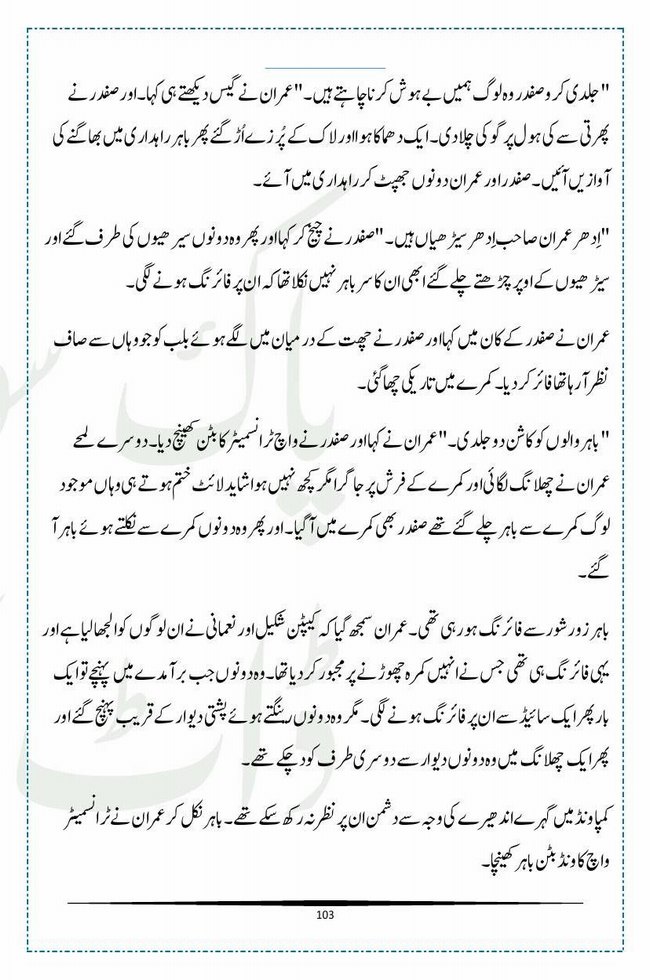 "جلدی کرو صفدر وہ لوگ ہمیں بے ہوش کرنا چاہتے ہیں۔"عمران نے گیس دیکھتے ہی کہا۔ اور صفدر نے
پھرتی سے کی ہول پر گو کی چلا دی۔ ایک دھماکا ہوا اور لاک کے پُرزے اُڑ گئے پھر باہر راہداری میں بھاگنے کی
آوازیں آئیں۔ صفدر اور عمران دونوں جھپٹ کر راہداری میں آئے۔
"اِدھر عمران صاحب اِدھر سیڑھیاں ہیں۔"صفدر نے چیخ کر کہا اور پھر وہ دونوں سیرھیوں کی طرف گئے اور
سیڑھیوں کے اوپر چڑھتے چلے گئے ابھی ان کا سر باہر نہیں نکلا تھا کہ ان پر فائرنگ ہونے لگی۔
عمران نے صفدر کے کان میں کہا اور صفدر نے چھت کے درمیان میں لگے ہوئے بلب کو جو وہاں سے صاف
نظر آرہا تھا فائر کر دیا۔ کمرے میں تاریکی چھا گئی۔
"باہر والوں کو کاشن دو جلدی۔"عمران نے کہا اور صفدر نے واچ ٹرانسمیٹر کا بٹن کھینچ دیا۔ دوسرے لمحے
عمران نے چھلانگ لگائی اور کمرے کے فرش پر جا گرا مگر کچھ نہیں ہوا شاید لائٹ ختم ہوتے ہی وہاں موجود
لوگ کمرے سے باہر چلے گئے تھے صفدر بھی کمرے میں آگیا۔ اور پھر وہ دونوں کمرے سے نکلتے ہوئے باہر آ
گئے۔
باہر زور شور سے فائرنگ ہو رہی تھی۔ عمران سمجھ گیا کہ کیپٹن شکیل اور نعمانی نے ان لوگوں کو الجھا لیا ہے اور
یہی فائرنگ ہی تھی جس نے انہیں کمرہ چھوڑنے پر مجبور کر دیا تھا۔ وہ دونوں جب برآمدے میں پہنچے تو ایک
بار پھر ایک سائیڈ سے ان پر فائرنگ ہونے لگی۔ مگر وہ دونوں رینگتے ہوئے پشتی دیوار کے قریب پہنچ گئے اور
پھر ایک چھلانگ میں وہ دونوں دیوار سے دوسری طرف کود چکے تھے۔
کمپاونڈ میں گہرے اندھیرے کی وجہ سے دشمن ان پر نظر نہ رکھ سکے تھے۔ باہر نکل کر عمران نے ٹرانسمیٹر
واچ کا ونڈ بٹن باہر کھینچا۔
103